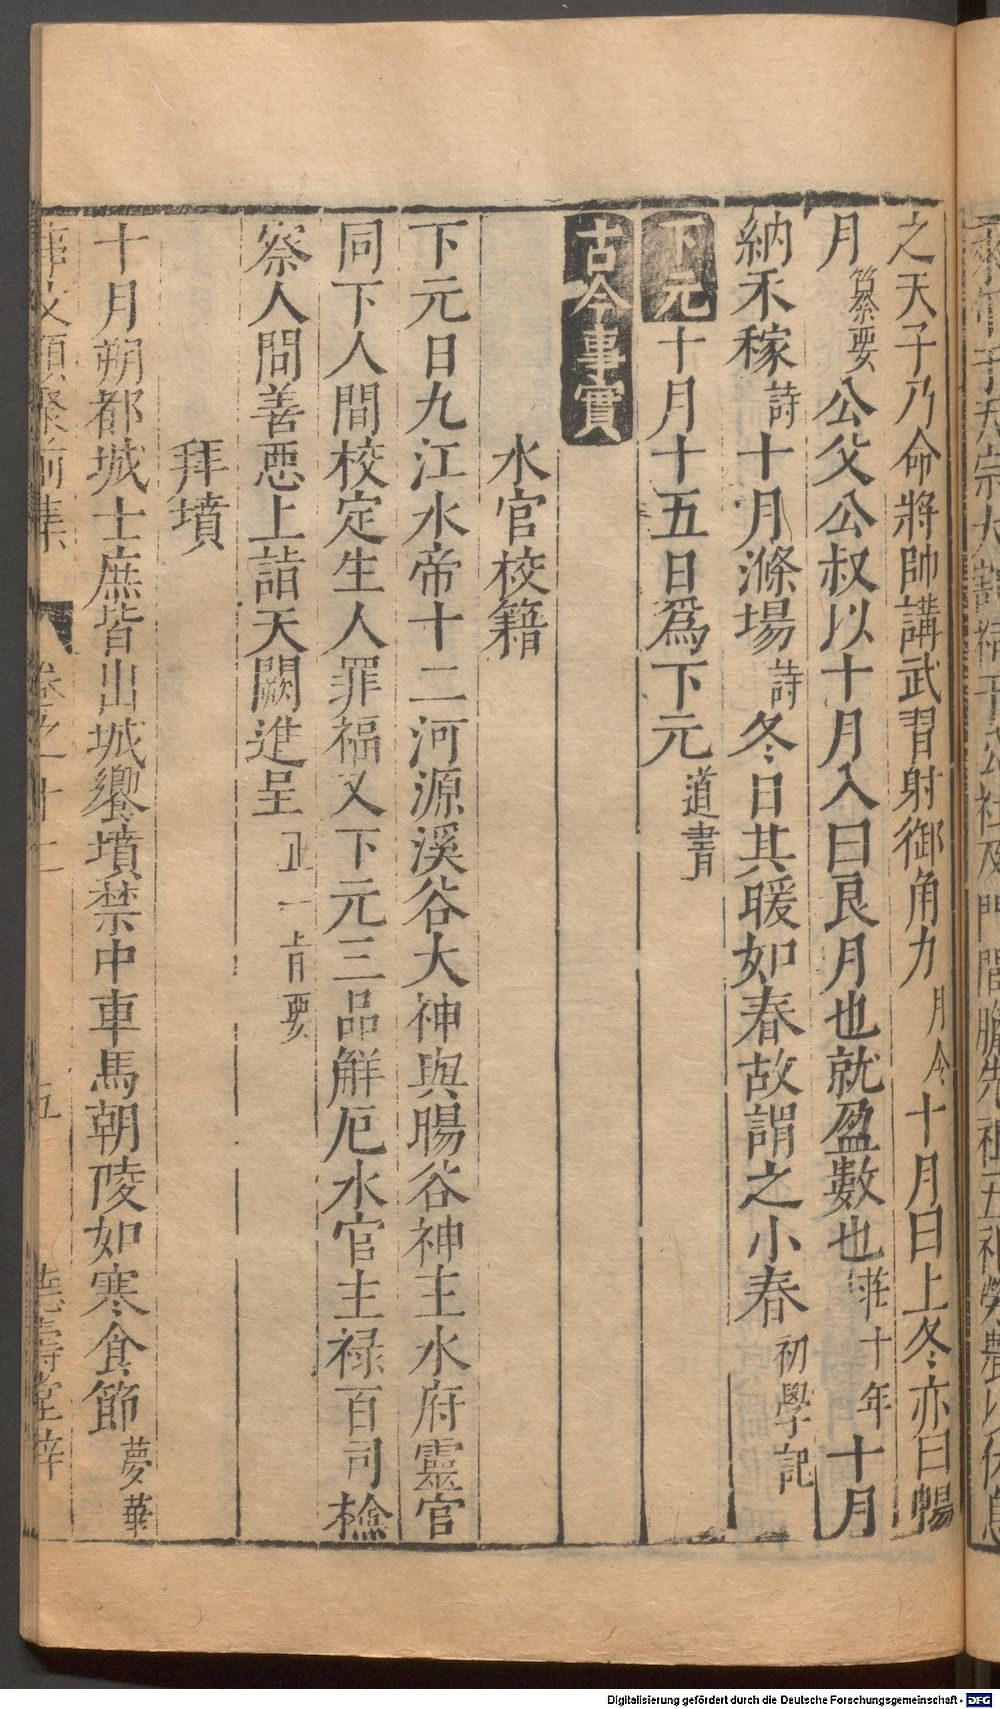 之天子乃命將帥講武習射御角力月令十月曰上冬亦曰暢
月纂要公父公叔以十月入曰良月也就盈數也莊十年十月
納禾稼詩十月滌場詩冬日其暖如春故謂之小春初學記
下元十月十五日爲下元道書
古今事實
水官校籍
下元日九江水帝十二河源溪谷大神與暘谷神主水府靈官
同下人間校定生人罪福又下元三品解厄水官主祿百司檢
察人間善惡上詣天闕進呈正一旨要
拜墳
十月朔都城士庶皆出城饗墳禁中車馬朝陵如寒食節夢華
事文類聚前集 卷之十二 五 德壽堂梓
Digitalisierung gefördert durch die Deutsche Forschungsgemeinschaft - DFG